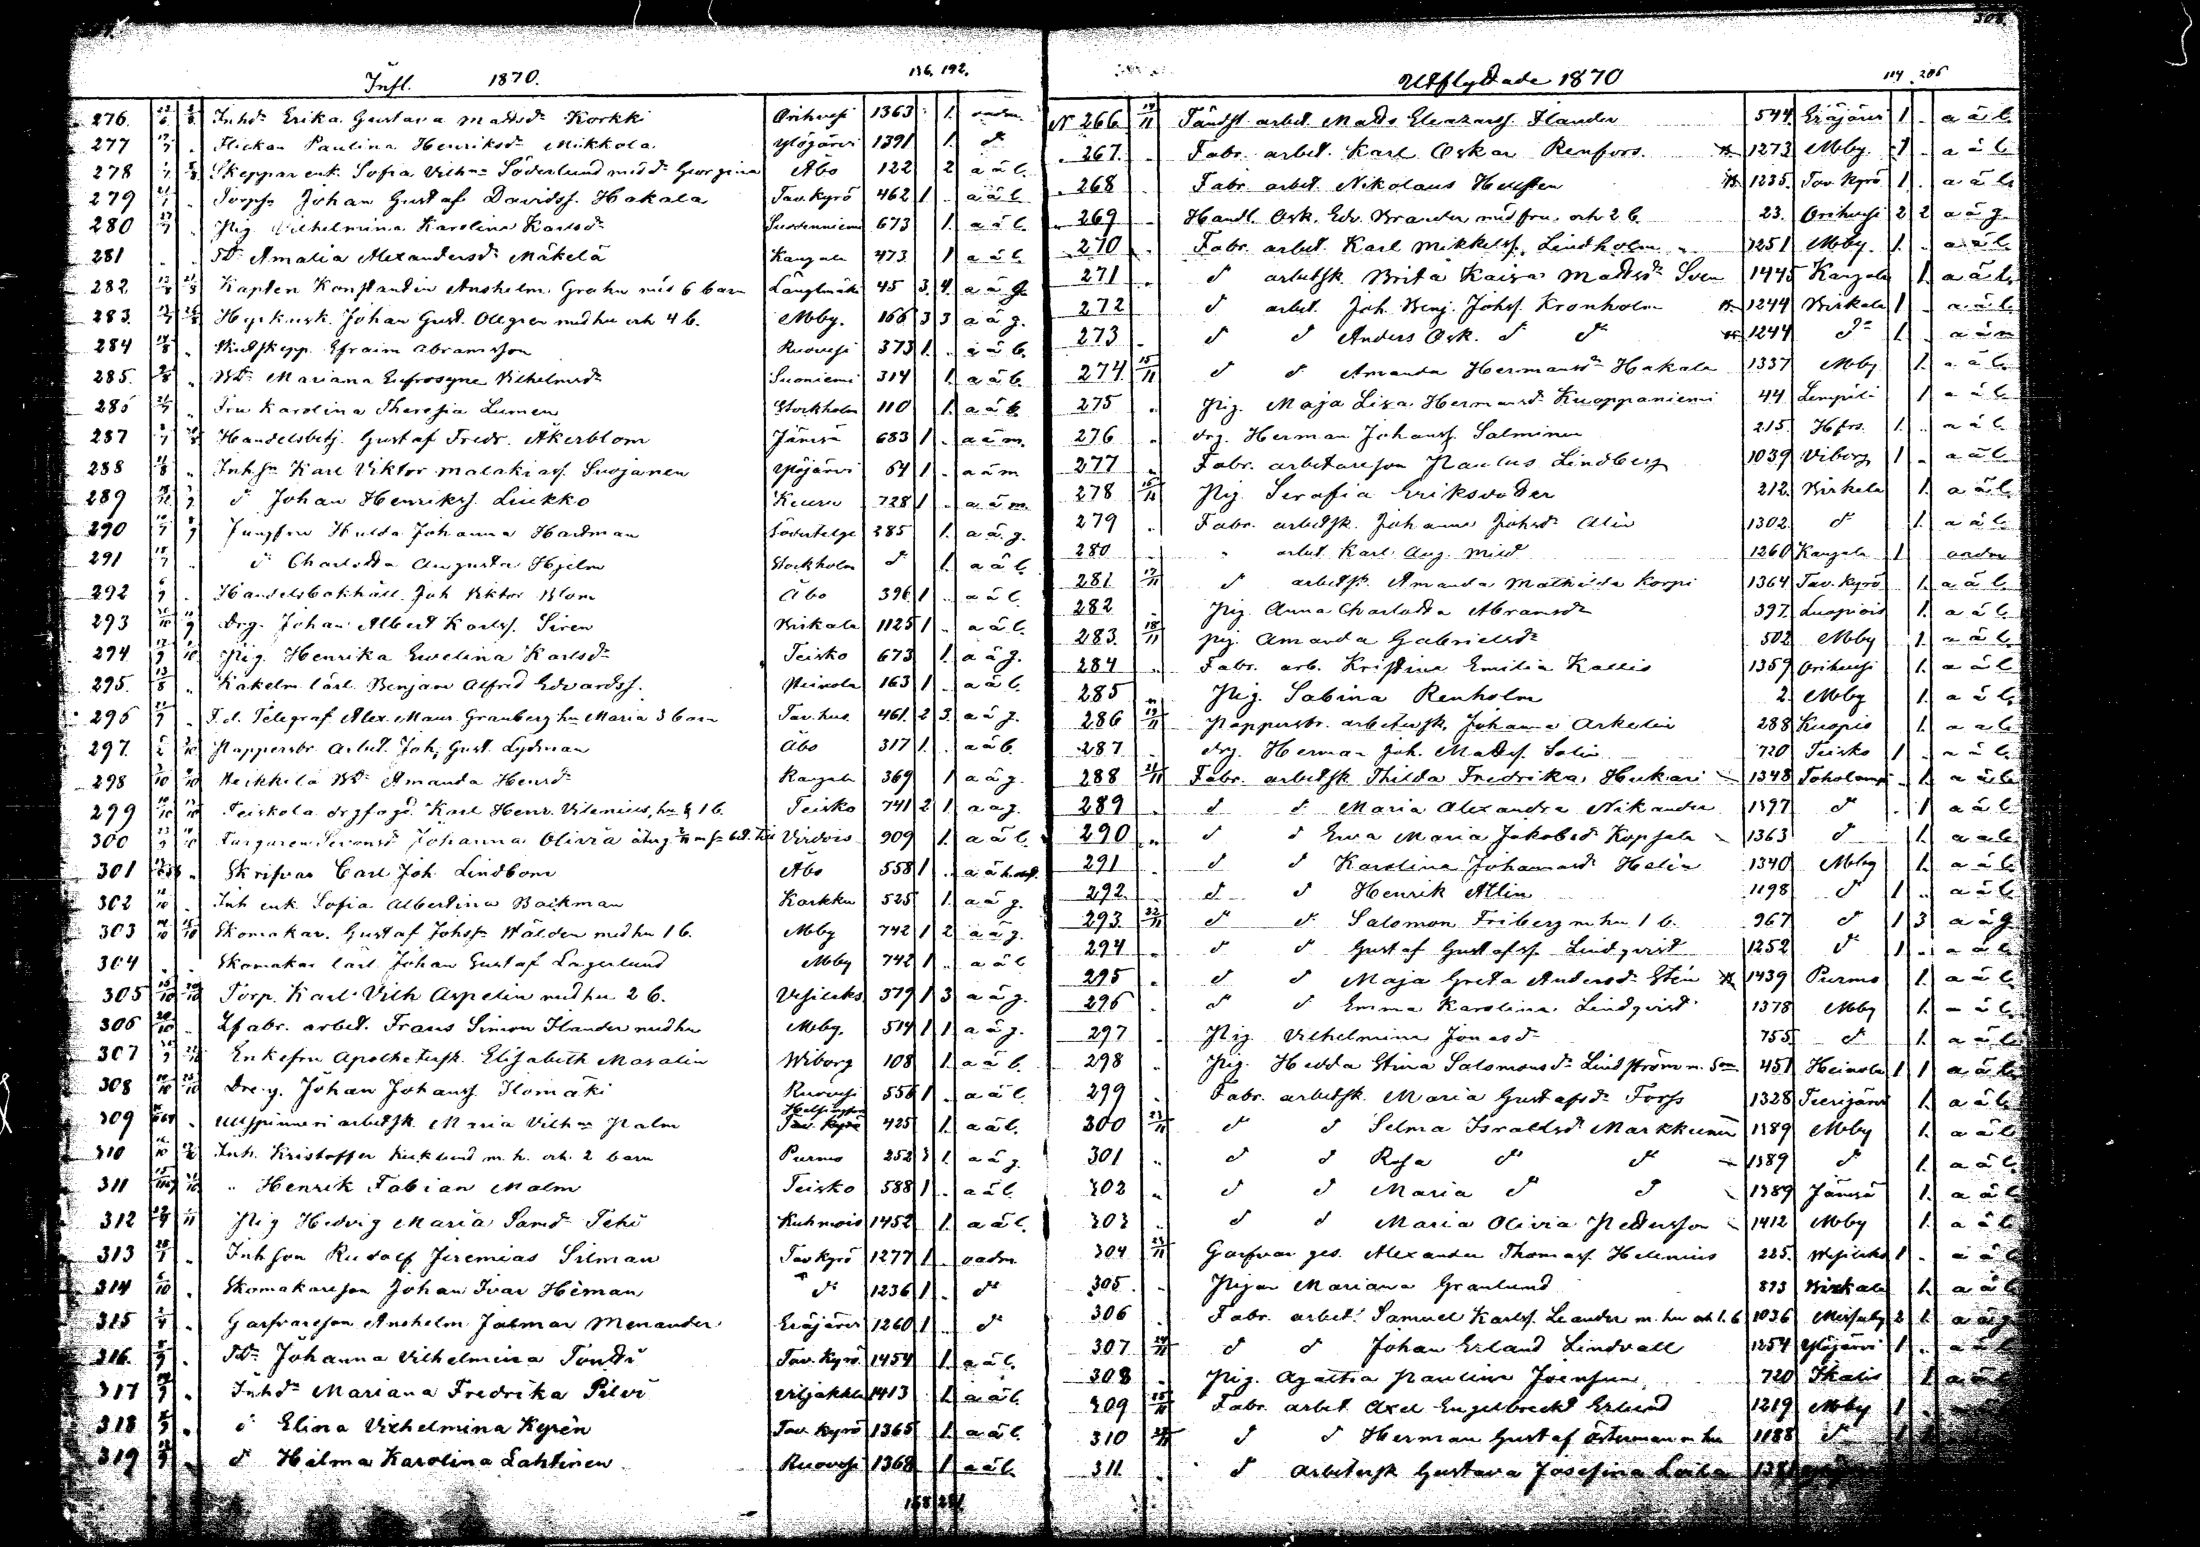 Infl. 1870. 136. 192.
276. Inhd Erika Gustava Mattsdr Korkki Orihvesi 1363 1.
277 Flickan Paulina Henriksdr Mikkola Ylöjärvi 1391 1. dº
278 Skeppar enk. Sofia Vilhna Söderlund med dr Georgina Åbo 122 2 a ä l.
279 Johan Gustaf Davidss. Hakala Tav.kyrö 462 1 .. a ä l.
280 Pig. Vilhelmina Karolina Karlsdr Suodenniemi 673 1. a ä l.
281 Amalia Alexandersdr Mäkelä Kangala 473 1 a ä l.
282 Kapten Konstantin Anshelm Grahn med 6 barn Längelmäki 45 3. 4. a ä g.
283. Hyrkusk. Johan Gust. Ollgren med hu och 4 b. Mby. 166 3 3 a ä g.
284 Efraim Abramsson Ruovesi 373 1. ..
285. Mariana Eufrosyne Vilhelmsdr Suoniemi 314 1. a ä b.
286 Fru Karolina Theresia Lumen Stockholm 110 1. a ä b.
287 Handelsbetj. Gustaf Fredr. Åkerblom Jämsä 683 1 .. a ä m.
288 Inhsn Karl Viktor Malakiass. Suojanen Ylöjärvi 64 1 .. a ä m
289 dº Johan Henrikss. Liukko Keuru 728 1 .. a ä m.
290 Jungfru Hulda Johanna Hartman Södertelge 285 1. a ä g.
291 dº Charlotta Augusta Hjelm Stockholm dº 1. a ä l.
292 Handelsbokhåll. Joh Viktor Blom Åbo 396 1 .. a ä l.
293 Drg. Johan Albert Karlss. Siren Birkala 1125 1 .. a ä l.
294 Pig. Henrika Evelina Karlsdr Teisko 673 1. a ä g.
295. Kakelm. lärl. Benjam Alfred Edvardss. Heinola 163 1 .. a ä l.
296 F.d. Telegraf. Alex. Maur. Granberg hu Maria 3 barn Tav.hus. 461. 2 3. a ä g.
297. Pappersbr. arbet. Joh. Gust. Lydman Åbo 317 1. .. a ä b.
298 Heikkilä Amanda Henrdr Kangala 369 1 a ä g.
299 Teiskola drgfogd Karl Henr. Vilenius, hu & 1 b. Teisko 741 2 1. a ä g.
300 Johanna Olivia Virdois 909 1. a ä l.
301 Skrifvar Carl Joh Lindbom Åbo 558 1 ..
302 Inh enk. Sofia Albertina Backman Karkku 525 1. a ä g.
303 Skomakar. Gustaf Johsn Wälden med hu 1 b. Mby 742 1 2 a ä g.
304 Skomakar lärl Johan Gustaf Lagerlund Mby 742 1 .. a ä l
305 Torp. Karl Vilh Aspelin med hu 2 b. Vesilaks 379 1 3 a ä g.
306 Lfabr. arbet. Frans Simon Ilander med hu Mby. 514 1 1 a ä g.
307 Enkefru Apothekersk. Elisabeth Masalin Wiborg 108 1. a ä b.
308 Dreg. Johan Johanss. Ilomäki Ruovesi 556 1 .. a ä l.
309 Ullspinneri arbetsk Maria Vilhna Palm Helsingfors Tav. Kyrö 425 1. a ä l.
310 Inh. Kristoffer m. h. och 2 barn Purmo 252 3 1. a ä g.
311 " Henrik Fabian Malm Teisko 588 1 .. a ä l.
312 Pig Hedvig Maria Samdr Kuhmois 1452 1. a ä l.
313 Inhson Rudolf Jeremias Silman Tavkyrö 1277 1 ..
314 Skomakareson Johan Ivar Heman dº 1236 1 .. dº
315 Garfvareson Anshelm Jalmar Menander Eräjärvi 1260 1 .. dº
316. Johanna Vilhelmina Tav. Kyrö 1454 1. a ä l.
317 Inhdr Mariana Fredrika Pilvi Viljakkala 1413 1. a ä l.
318 dº Elina Vilhelmina Kyrén Tav. kyrö 1365 1. a ä l.
319 dº Hilma Karolina Lahtinen Ruovesi 1368 1 a ä l.
308.
Utflyttade 1870 114. 206
N 266 19/11 Tändst. arbet. Matts Eleazarss. Ilander 544. Eräjärvi 1 .. a ä l.
267. Fabr. arbet. Karl Oskar Renfors. 1273 Mby. 1 .. a ä l.
268 Fabr. arbet. Nikolaus Hellsten 1235. Tav. kyrö 1 .. a ä l.
269 Handl. Osk. Edv. Brander med fru och 2 b. 23. Orihvesi 2 2 a ä g.
270 Fabr. arbet. Karl Mikkelss. Lindholm 1251 Mby. 1. .. a ä l.
271 dº arbetsk. Brita Kaisa Mattsdr Sven 1445 Kangala 1. a ä l.
272 dº arbet. Joh. Benj. Johss. Kronholm 1244 Birkala 1 .. a ä l.
273 dº dº Anders Osk. dº dº 1244 dº 1. .. a ä m
274 15/11 dº dº Amanda Hermansdr Hakala 1337 Mby 1. a ä l.
275 Pig. Maja Lisa Hermansdr Kuoppaniemi 44 Lempälä 1 a ä l
276 drg. Herman Johanss. Salminen 215 Hfrs. 1. .. a ä l
277 Fabr. arbetareson Paulus Lindberg 1039 Viborg 1 .. a ä l
278 Pig. Serafia Eriksdotter 212. Birkala 1. a ä l.
279 Fabr. arbetsk. Johanna Johsdr Alin 1302. dº 1. a ä l.
280 " arbet Karl Aug. 1260 Kangala 1
281 17/11 dº arbetsk. Amanda Mathilda Korpi 1364 Tav. Kyrö 1. a ä l.
282 Pig. Anna Charlotta Abramsdr 397. Luopiois 1. a ä l.
283. 18/11 pig. Amanda Gabrielsdr 502 Mby 1. a ä l.
284 Fabr. arb. Kristina Emilia Kallis 1359 Orihvesi 1. a ä l.
285 Pig. Sabina Renholm 2 Mby 1. a ä l.
286 19/11 Pappersbr. arbetersk. Johanna Arkelin 288 Kuopio 1. a ä l.
287 drg. Herman Joh. Mattss. Salin 720 Teisko 1 .. a ä l.
288 21/11 Fabr. arbetsk Thilda Fredrika Hukari 1348 Toholampi 1. a ä l.
289 dº dº Maria Alexandra Nikander 1397 dº 1 a ä l.
290 dº dº Ewa Maria Jakobsdr Kopsala 1363 dº 1. a ä l.
291 dº dº Karolina Johannesdr Helin 1340 Mby 1. a ä l.
292. dº dº Henrik Atlin 1198 dº 1 .. a ä l.
293. 22/11 dº dº Salomon Friberg m. hu 1 b. 967 dº 1 3 a ä g
294 dº dº Gustaf Gustafss. Lindqvist 1252 dº 1 .. a ä l.
295 dº dº Maja Greta Andersdr Sten 1439 Purmo 1. a ä l.
296 dº dº Emma Karolina Lindqvist 1378 Mby 1. a ä l.
297 Pig Vilhelmina Jonasdr 755 dº 1. a ä l.
298 Pig. Hedda Stina Salomonsdr Lindström m. son 451 Heinola 1 1 a ä l.
299 Fabr. arbetsk. Maria Gustafsdr Forss 1328 Teerijärvi 1. a ä l.
300 23/11 dº dº Selma Israelsdr Markkunen 1389 Mby 1. a ä l.
301 dº dº Rosa dº dº 1389 dº 1. a ä l.
302 dº dº Maria dº dº 1389 Jämsä 1. a ä l.
303 dº dº Maria Olivia Pettersson 1412 Mby 1. a ä l.
304 Garfvar ges. Alexander Thomass. Helenius 225. Wesilaks 1 .. a ä l.
305. Pigan Mariana Granlund 893 Birkala 1. a ä l
306 Fabr. arbet. Samuel Karlss. Leander m. hu och 1 b 1036 2 1. a ä g
307 24/11 dº dº Johan Erland Lindvall 1254 Ylöjärvi 1 .. a ä l
308 Pig. Agatha Paulina 720 Ikalis 1 a ä l
309 Fabr. arbet. Axel Engelbrecht Erlund 1219 Mby 1 ..
310 dº dº Herman Gustaf Österman m hu 1188 dº 1
311. dº arbetersk Gustava Josefina
168 241